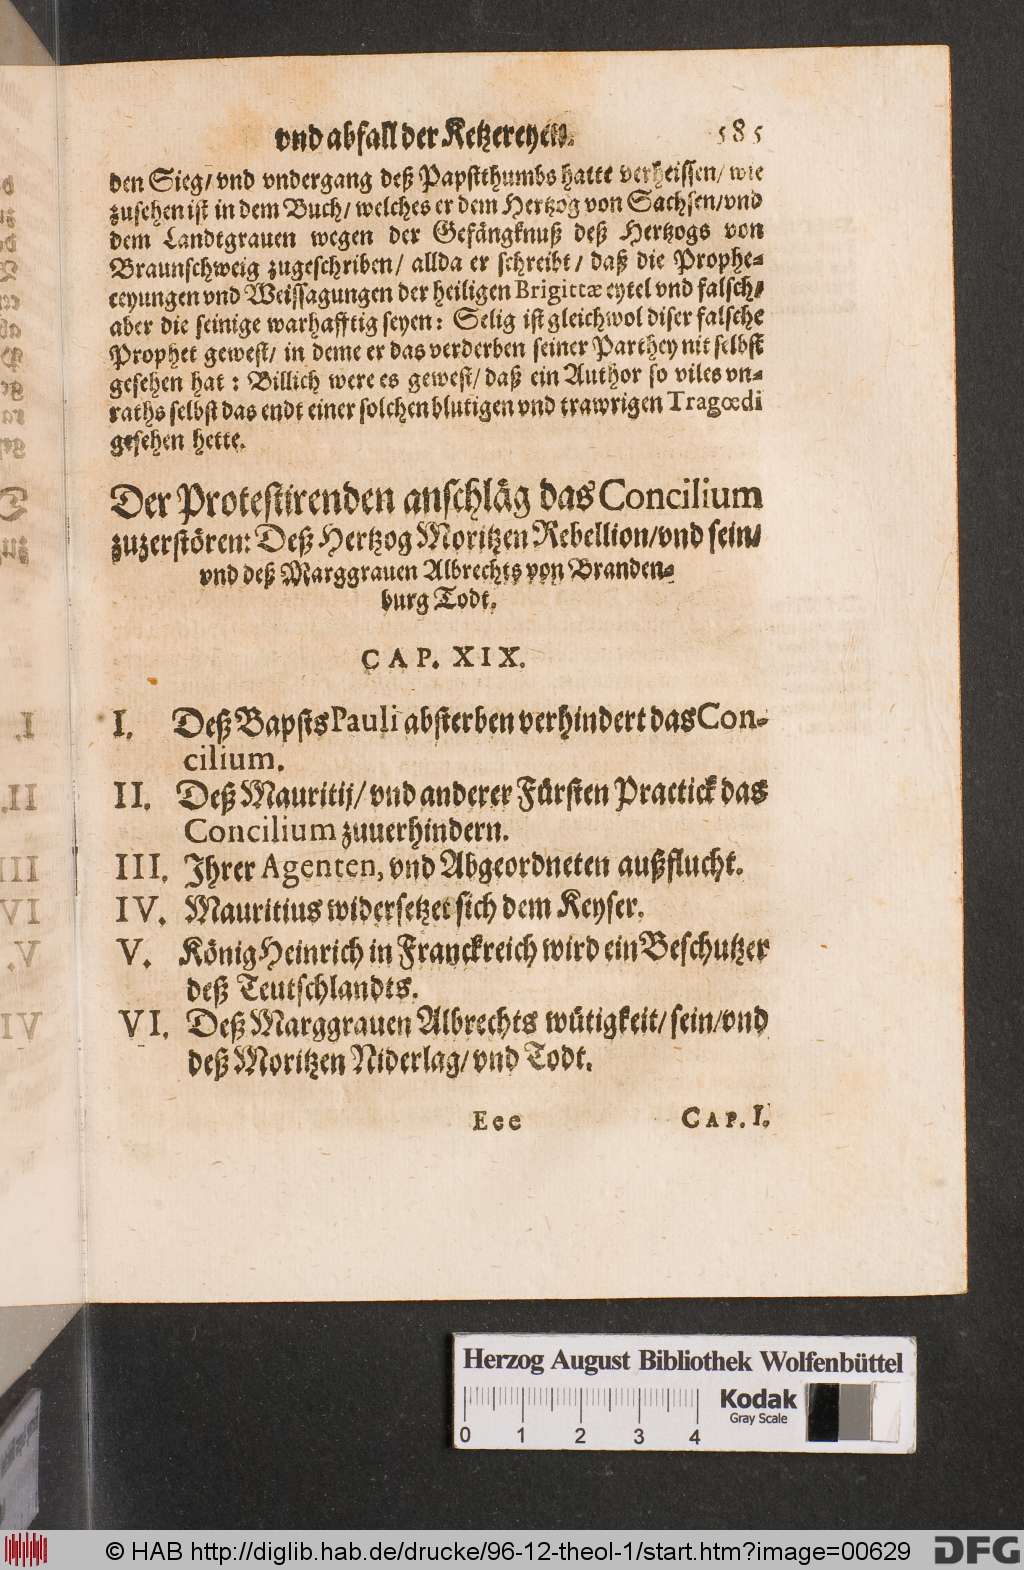 vnd abfall der Ketzereyen. 585
den Sieg/ vnd vndergang deß Papstthumbs hatte verheissen/ wie
zusehen ist in dem Buch/ welches er dem Hertzog von Sachsen/ vnd
dem Landtgrauen wegen der Gefängknuß deß Hertzogs von
Braunschweig zugeschriben/ allda er schreibt/ daß die Prophe-
ceyungen vnd Weissagungen der heiligen Brigittæ eytel vnd falsch/
aber die seinige warhafftig seyen: Selig ist gleichwol diser falsche
Prophet gewest/ in deme er das verderben seiner Parthey nit selbst
gesehen hat: Billich were es gewest/ daß ein Author so viles vn-
raths selbst das endt einer solchen blutigen vnd trawrigen Tragœdi
gesehen hette.
Der Protestirenden anschläg das Concilium
zuzerstören: Deß Hertzog Moritzen Rebellion/ vnd sein/
vnd deß Marggrauen Albrechts von Branden-
burg Todt.
CAP. XIX.
I. Deß Bapsts Pauli absterben verhindert das Con-
cilium.
II. Deß Mauritij/ vnd anderer Fürsten Practick das
Concilium zuuerhindern.
III. Ihrer Agenten, vnd Abgeordneten außflucht.
IV. Mauritius widersetzet sich dem Keyser.
V. König Heinrich in Franckreich wird ein Beschutzer
deß Teutschlandts.
VI. Deß Marggrauen Albrechts wütigkeit/ sein/ vnd
deß Moritzen Niderlag/ vnd Todt.
Eee CAP. I.
Herzog August Bibliothek Wolfenbüttel
0 1 2 3 4
Kodak
Gray Scale
© HAB http://diglib.hab.de/drucke/96-12-theol-1/start.htm?image=00629
DFG